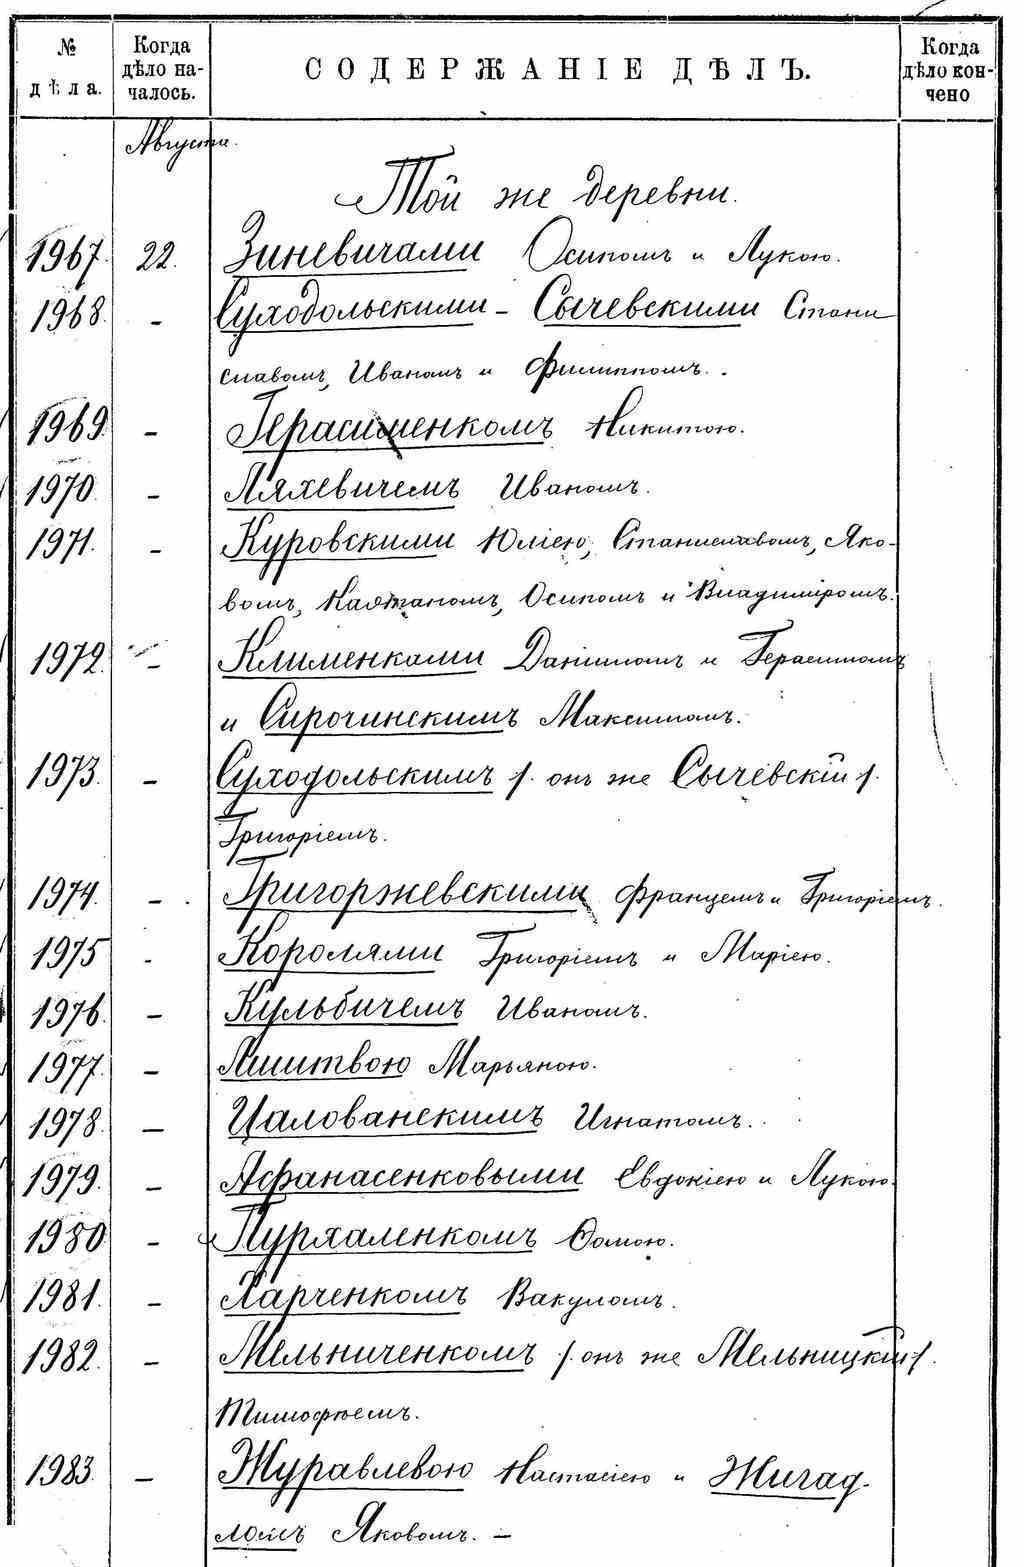 № дѣла.
Когда дѣло началось.
СОДЕРЖАНІЕ ДѢЛЪ.
Когда дѣло кончено
Августа.
Той же деревни.
1967. 22. Зиневичами Осипомъ и Лукою.
1968. – Суходольскими – Сычевскими Стани
славомъ, Иваномъ и Филиппомъ.
1969. – Герасименкомъ Никитою.
1970. – Ляхевичемъ Иваномъ.
1971. – Куровскими Юліею, Станиславомъ, Яко-
вомъ, Каэтаномъ, Осипомъ и Владиміромъ.
1972. – Клименками Даніиломъ и Герасимомъ
и Сирочинскимъ Максимомъ.
1973. – Суходольскимъ /. онъ же Сычевскій /.
Григоріемъ.
1974. – Григоржевскими Францемъ и Григоріемъ.
1975 - Королями Григоріемъ и Маріею.
1976. – Кульбичемъ Иваномъ.
1977. – Марьяною.
1978. – Цалованскимъ Игнатомъ.
1979. – Афанасенковыми Евдокіею и Лукою.
1980 – Пурхаленкомъ Ѳомою.
1981. – Харченкомъ Вакуломъ.
1982. – Мельниченкомъ /. онъ же Мельницкій /.
Тимофѣемъ.
1983. – Журавлевою Настасіею и Жигад-
ломъ Яковомъ. –